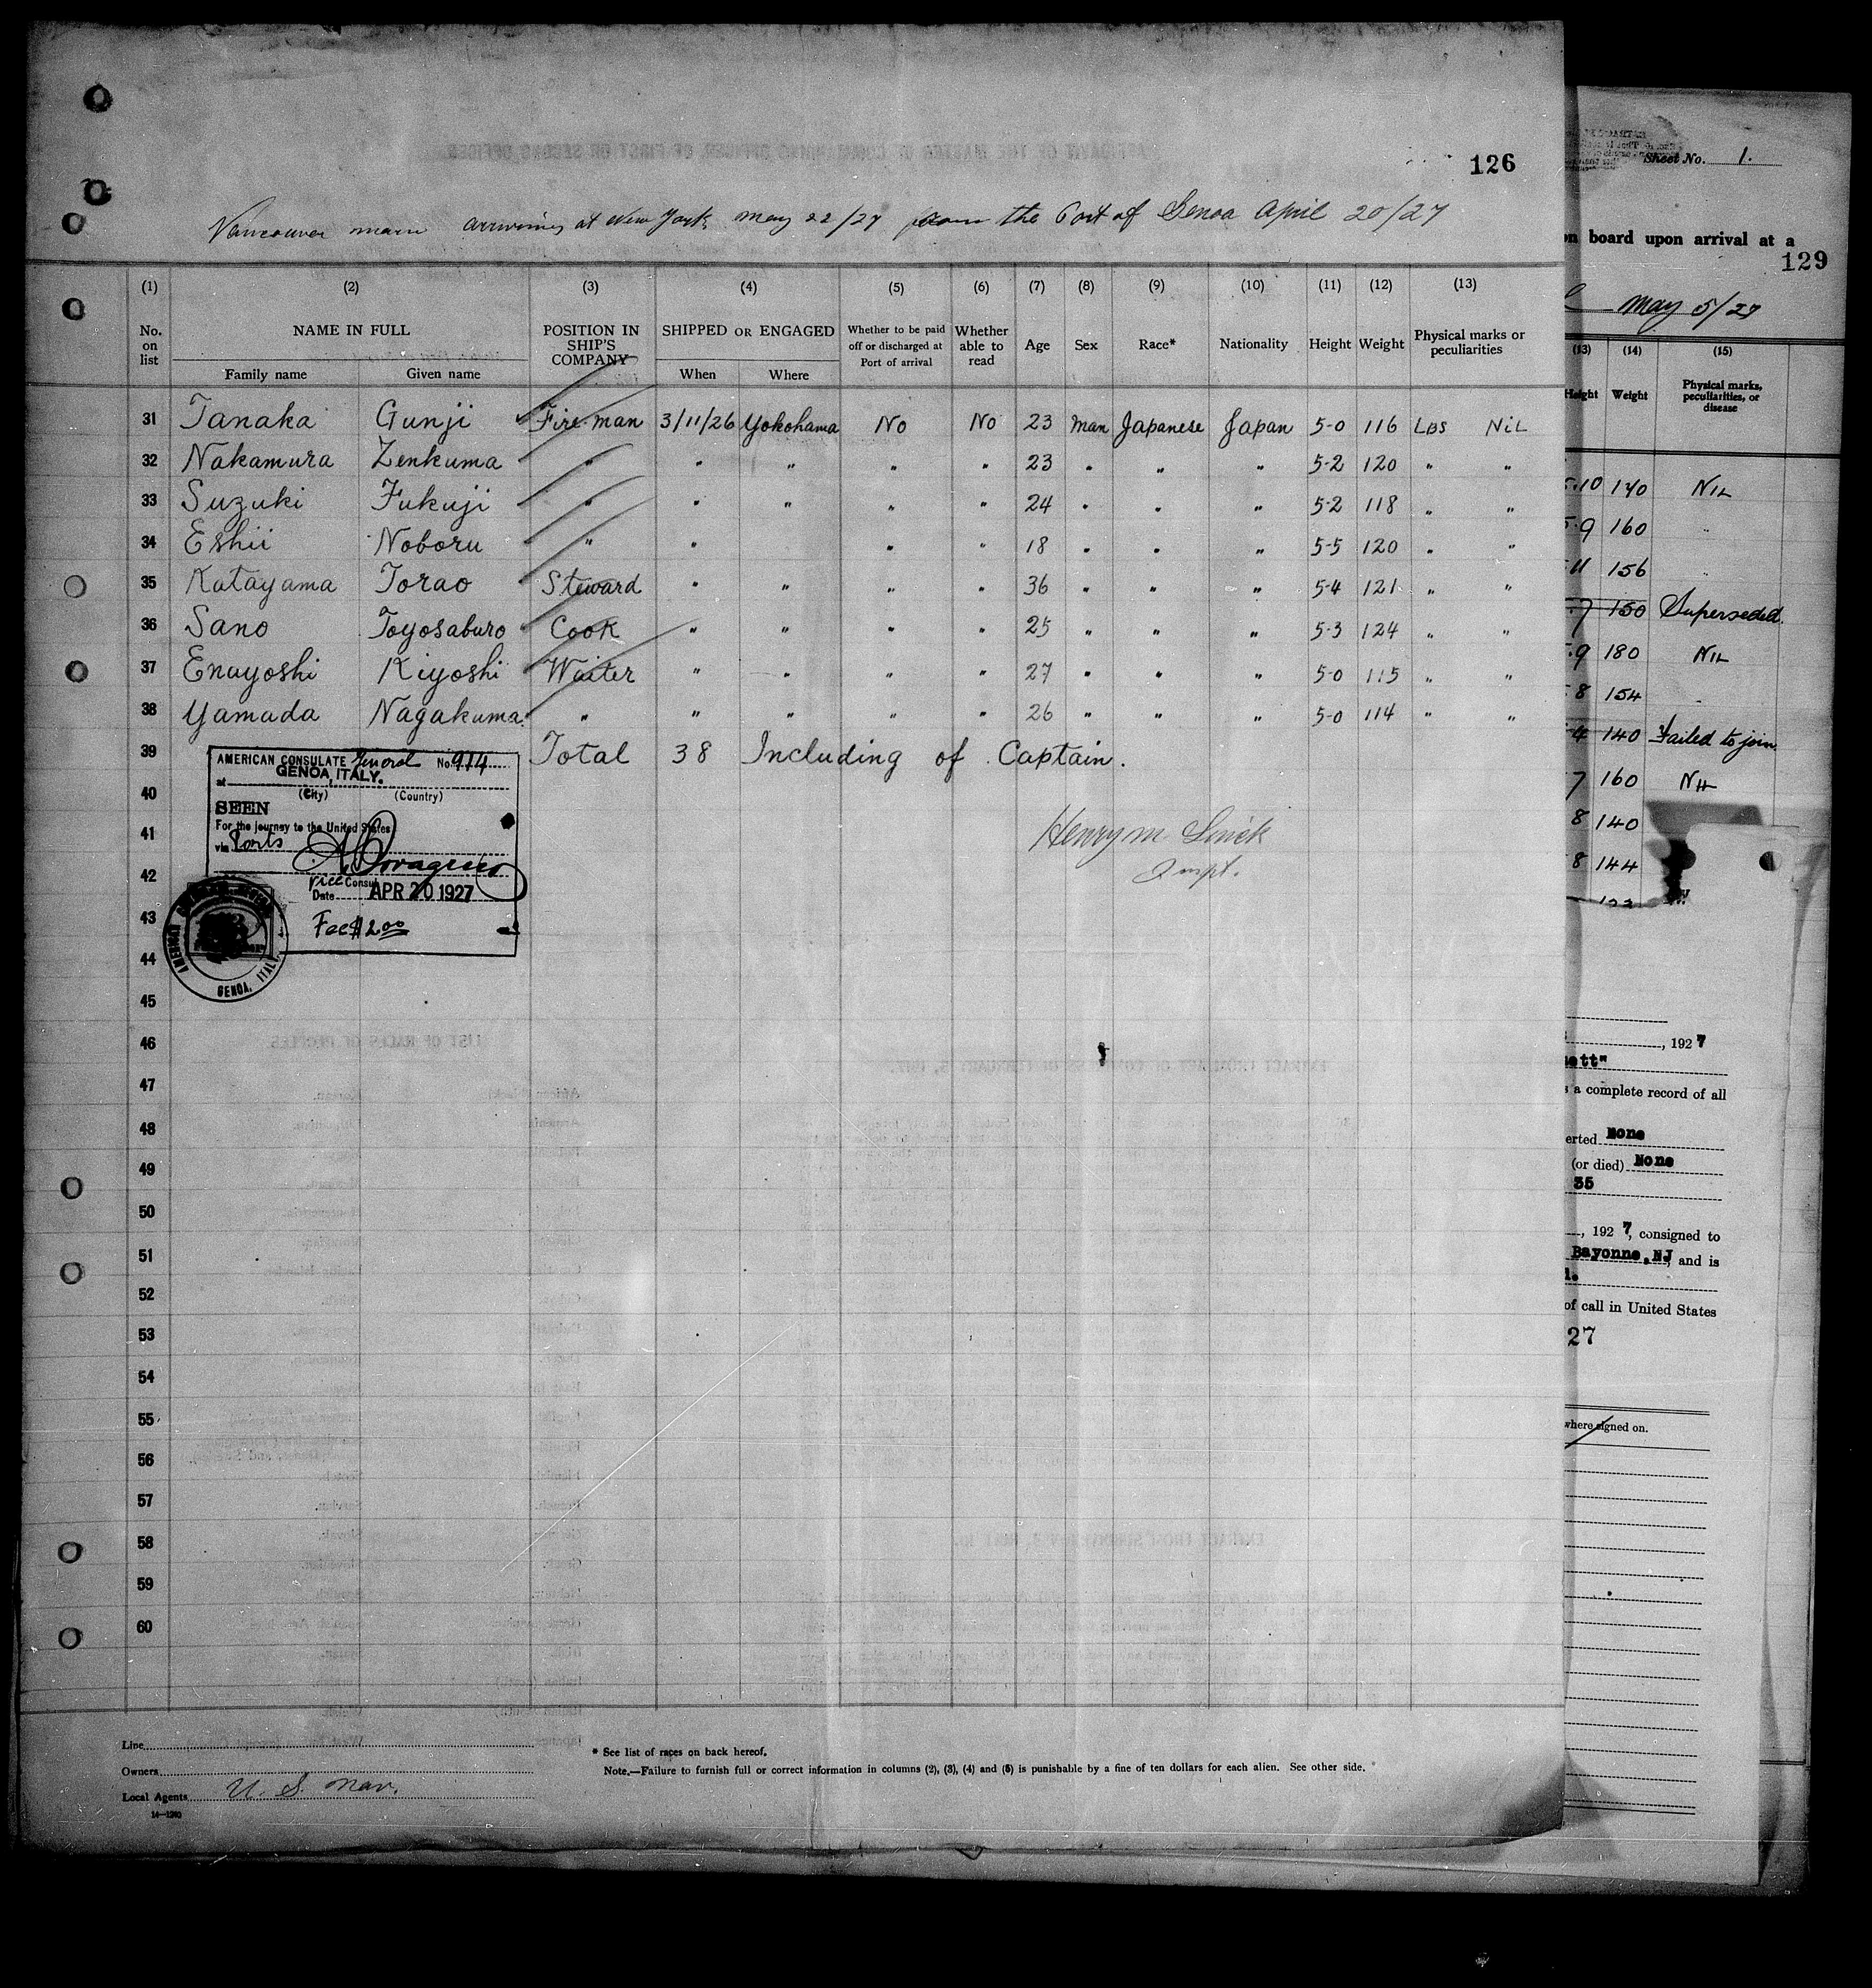 126
Vancouver maru arriving at New York May 22/27 from the Port of Genoa April 20/27
(1) (2) (3) (4) (5) (6) (7) (8) (9) (10) (11) (12) (13)
No. on list NAME IN FULL POSITION IN SHIP'S COMPANY SHIPPED OR ENGAGED Whether to be paid off or discharged at Port of arrival Whether able to read Age Sex Race* Nationality Height Weight Physical marks or peculiarities
Family name Given name When Where
31 Tanaka Gunji Fire man 3/11/26 Yokohama No No 23 Man Japanese Japan 5-0 116 LBS NiL
32 Nakamura Zenkuma " " " " " 23 " " " 5-2 120 " "
33 Suzuki Fukuji " " " " " 24 " " " 5-2 118 " "
34 Eshii Noboru " " " " 18 " " " 5-5 120 " "
35 Katayama Torao Steward " " " " 36 " " " 5-4 121 " "
36 Sano Toyosaburo Cook " " " " 25 " " " 5-3 124 " "
37 Enayoshi Kiyoshi Waiter " " " " 27 " " " 5-0 115 " "
38 Yamada Nagakuma " " " " " 26 " " " 5-0 114 " "
39 Total 38 Including of Captain.
40
41
42
43
44
45
46
47
48
49
50
51
52
53
54
55
56
57
58
59
60
AMERICAN CONSULATE General No. 914
at GENOA, ITALY.
(City) (Country)
SEEN
For the journey to the United States
via Ports
Vice Consul
Date APR 20 1927
Fee $2.00
AMERICAN
GENOA, ITALY
Henry M
Inspt.
Line
Owners
Local Agents U. S. Nav.
14—1240
* See list of races on back hereof.
Note.—Failure to furnish full or correct information in columns (2), (3), (4) and (5) is punishable by a fine of ten dollars for each alien. See other side.
Sheet No. 1.
on board upon arrival at a
129
May 5/27
(13) (14) (15)
Height Weight Physical marks, peculiarities, or disease
5.10 140 NIL
5.9 160 "
11 156 "
7 150 Superseded.
5.9 180 NIL
8 154
4 140 Failed to join
7 160 NIL
8 140
8 144
, 1927
ett"
a complete record of all
erted None
(or died) None
35
, 1927, consigned to
Bayonne, NJ, and is
of call in United States
27
where signed on.